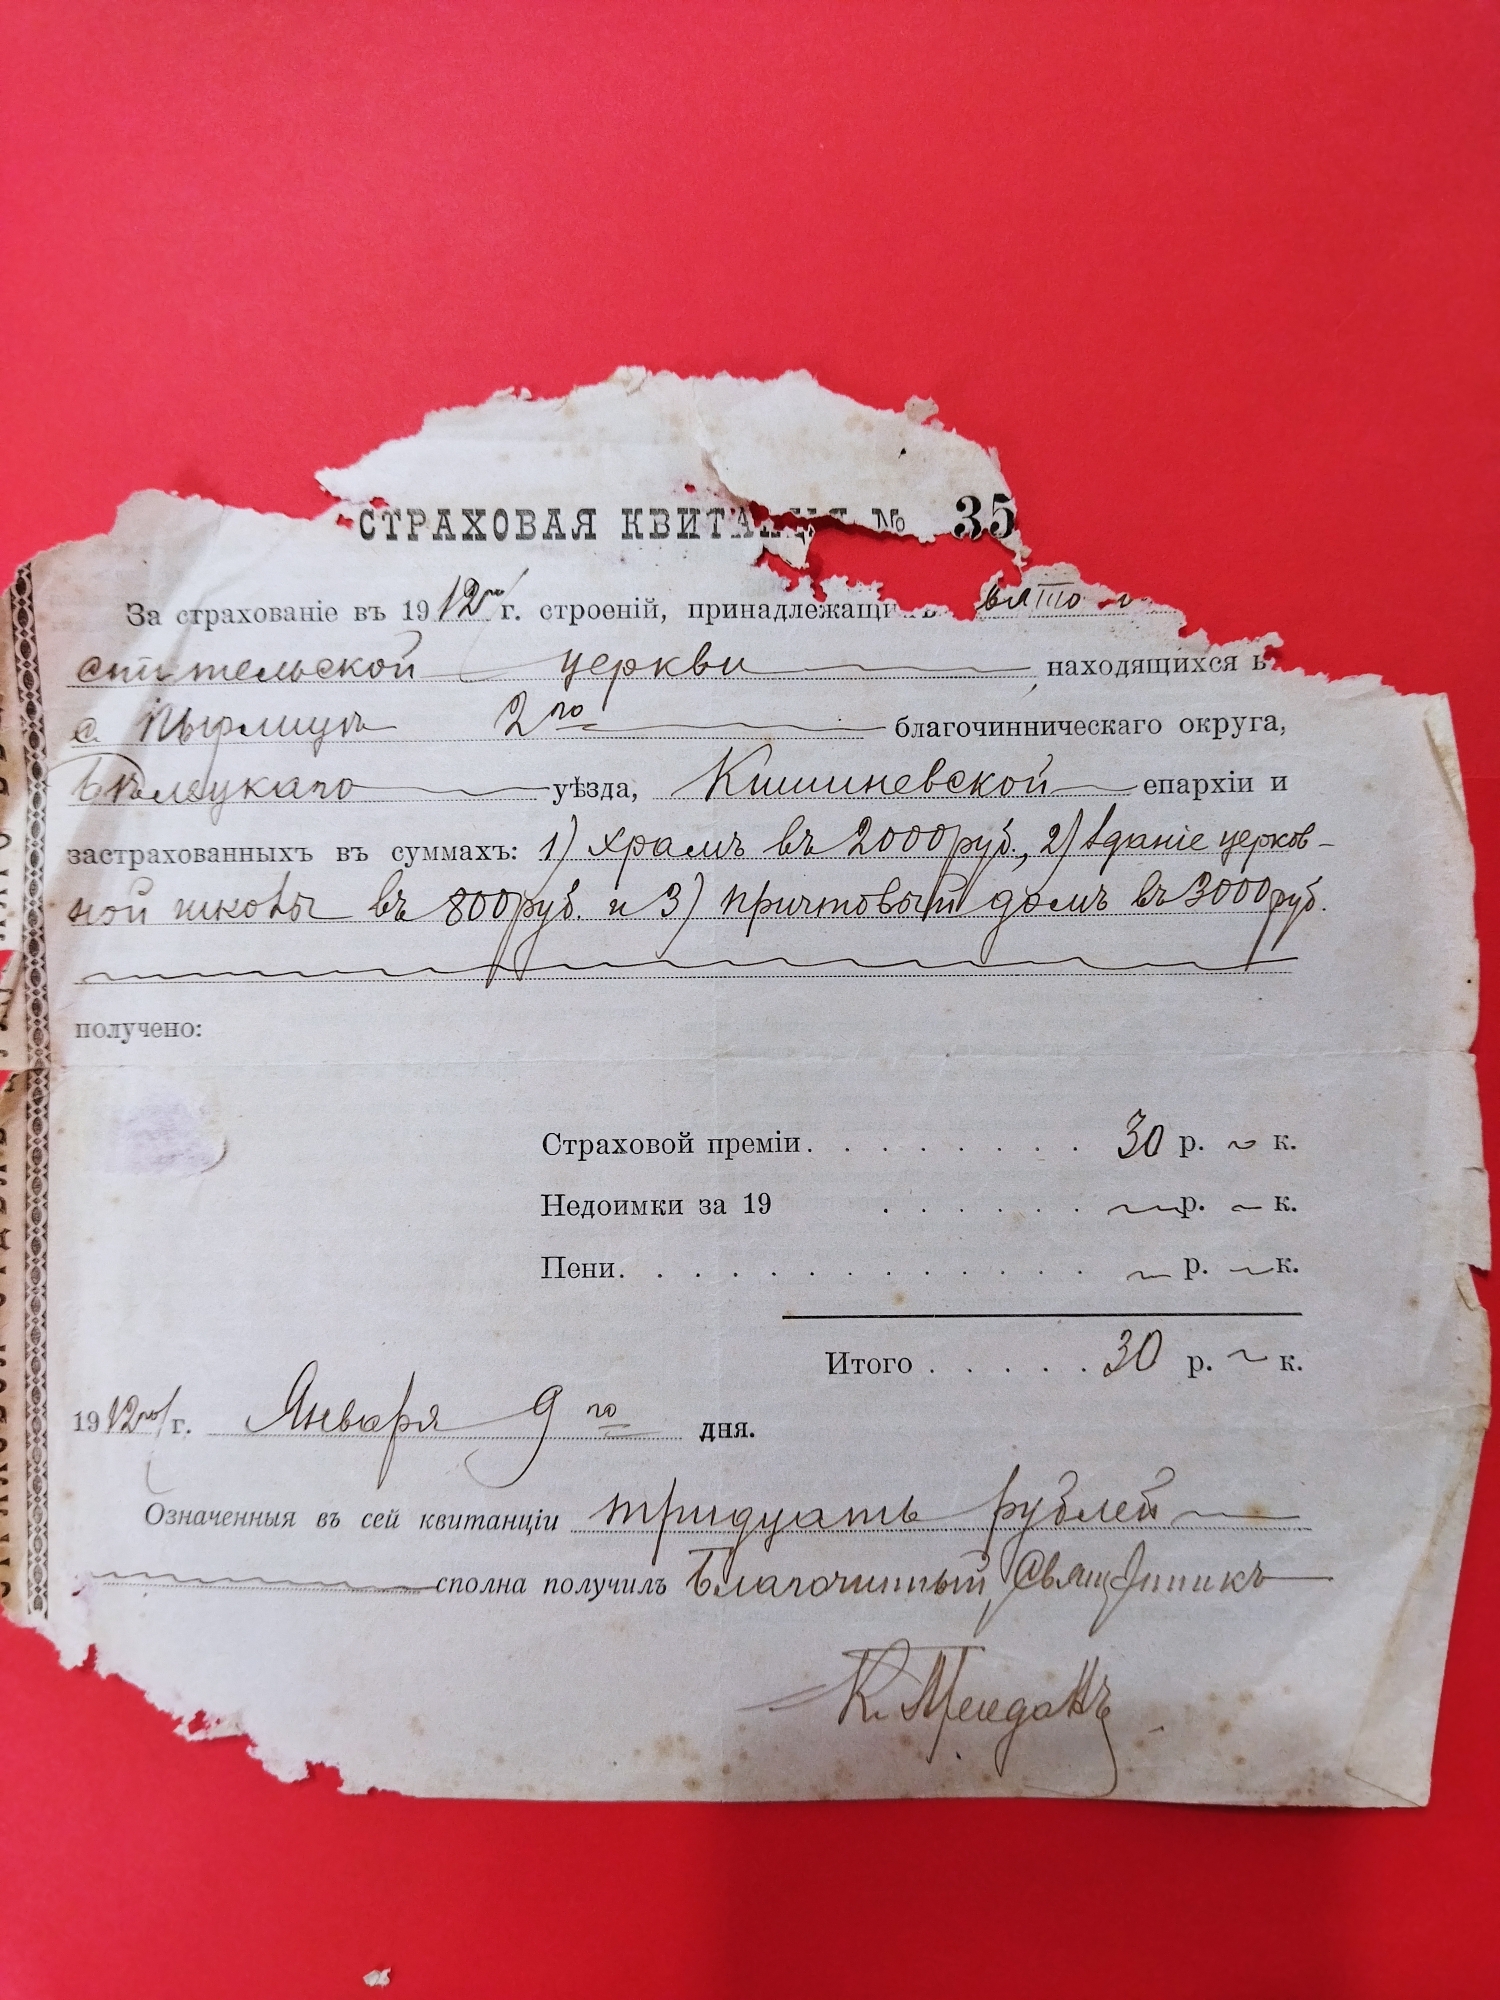 СТРАХОВАЯ КВИТАНЦІЯ № 35
За страхованіе въ 1912го г. строеній, принадлежащихъ
ительской церкви находящихся въ
с. Пырлица 2го благочинническаго округа,
Бѣлецкаго уѣзда, Кишиневской епархіи и
застрахованныхъ въ суммахъ: 1) храмъ въ 2000 руб., 2) зданіе церков-
ной школы въ 800 руб. и 3) причтовый домъ въ 3000 руб.
получено:
Страховой преміи. . . . . . . . . 30 р. ~ к.
Недоимки за 19 . . . . . . ~ р. ~ к.
Пени. . . . . . . . . . . . . . ~ р. ~ к.
Итого . . . . . 30 р. ~ к.
1912го г. Января 9го дня.
Означенныя въ сей квитанціи тридцать рублей
сполна получилъ Благочинный, Священникъ
К.